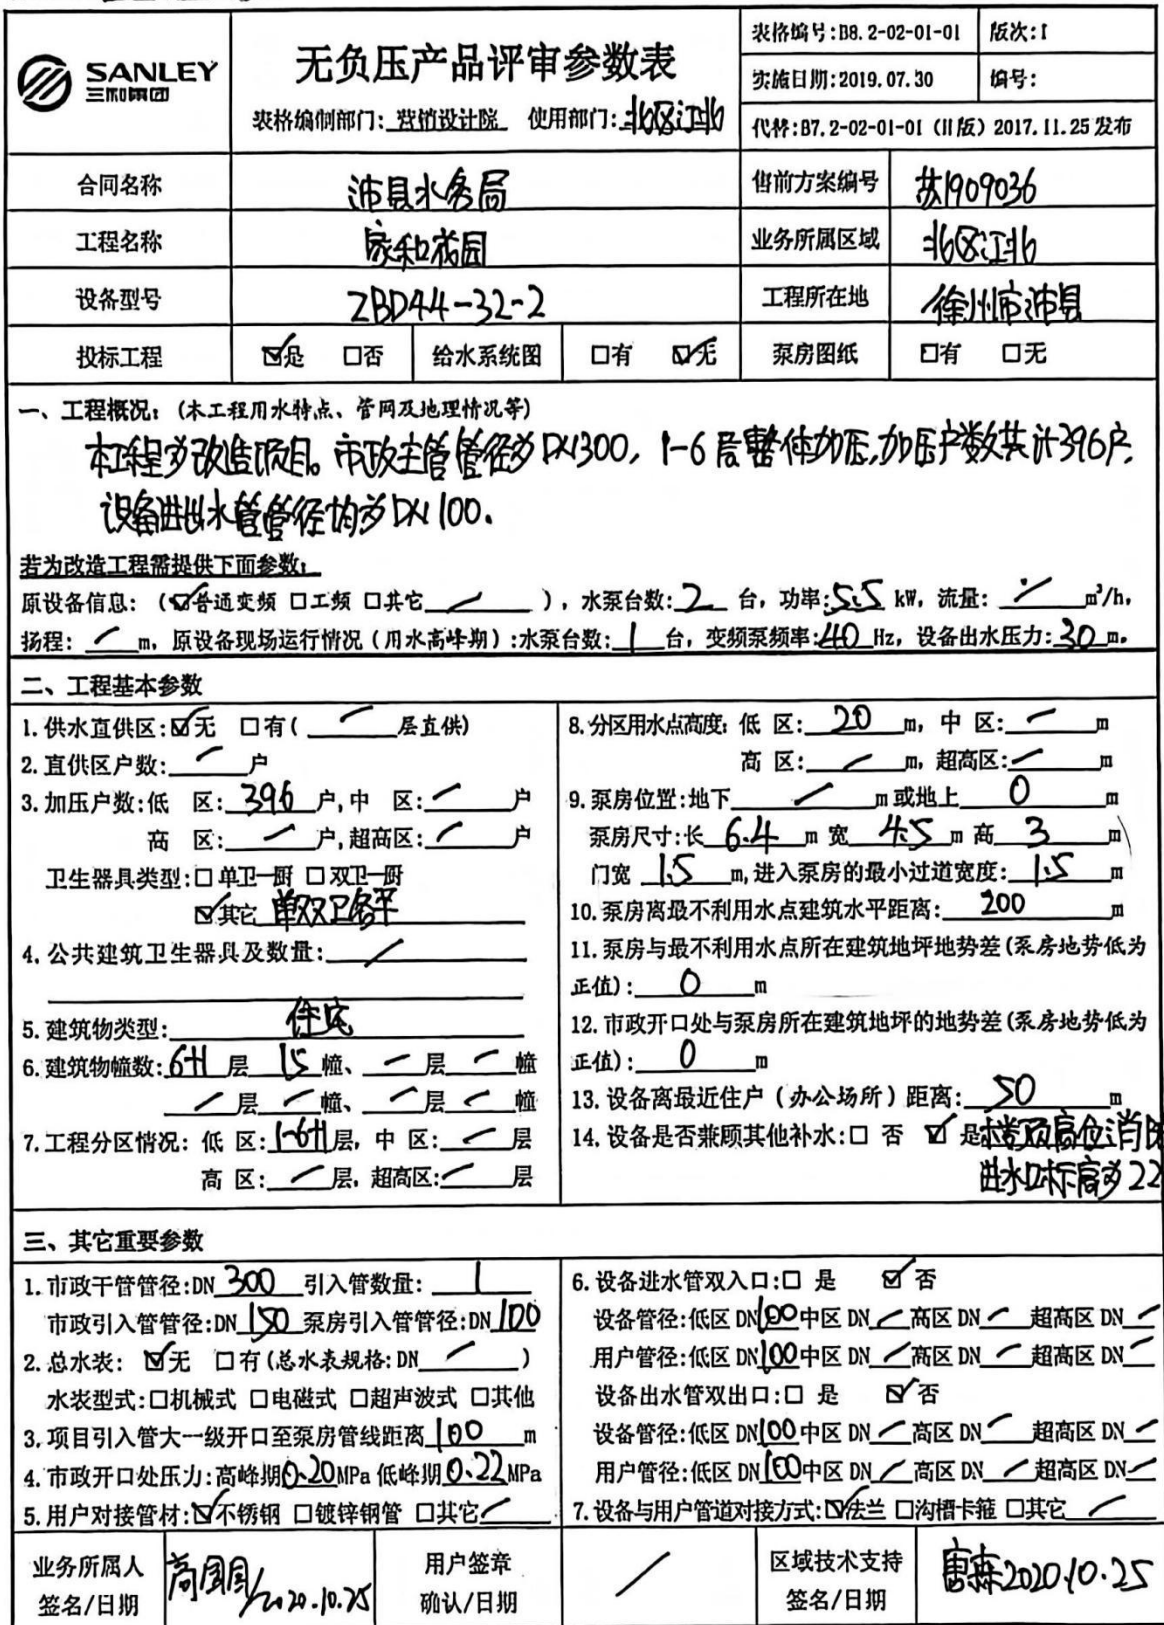 SANLEY
三和集团
无负压产品评审参数表
表格编制部门:营销设计院 使用部门:北区江北
表格编号:B8.2-02-01-01 版次:I
实施日期:2019.07.30 编号:
代替:B7.2-02-01-01 (II版) 2017.11.25发布
合同名称 沛县水务局 售前方案编号 苏1909036
工程名称 家和花园 业务所属区域 北区江北
设备型号 ZBD44-32-2 工程所在地 徐州市沛县
投标工程 ☑是 □否 给水系统图 □有 ☑无 泵房图纸 □有 □无
一、工程概况:(本工程用水特点、管网及地理情况等)
本工程为改造项目。市政主管管径为DN300,1-6层整体加压,加压户数共计396户,
设备进出水管管径均为DN100.
若为改造工程需提供下面参数:
原设备信息:(☑普通变频 □工频 □其它 / ),水泵台数:2 台,功率:5.5 kW,流量: / m³/h,
扬程: / m,原设备现场运行情况(用水高峰期):水泵台数:1 台,变频泵频率:40 Hz,设备出水压力:30 m。
二、工程基本参数
1.供水直供区:☑无 □有( / 层直供)
2.直供区户数: / 户
3.加压户数:低 区:396 户,中 区: / 户
高 区: / 户,超高区: / 户
卫生器具类型:□单卫一厨 □双卫一厨
☑其它 单双卫各半
4.公共建筑卫生器具及数量: /
5.建筑物类型: 住宅
6.建筑物幢数:6+1 层 15 幢、 / 层 / 幢
/ 层 / 幢、 / 层 / 幢
7.工程分区情况:低 区:1-6+1层,中 区: / 层
高 区: / 层,超高区: / 层
8.分区用水点高度:低 区: 20 m,中 区: / m
高 区: / m,超高区: / m
9.泵房位置:地下 / m或地上 0 m
泵房尺寸:长 6.4 m 宽 4.5 m 高 3 m
门宽 1.5 m,进入泵房的最小过道宽度: 1.5 m
10.泵房离最不利用水点建筑水平距离: 200 m
11.泵房与最不利用水点所在建筑地坪地势差(泵房地势低为
正值): 0 m
12.市政开口处与泵房所在建筑地坪的地势差(泵房地势低为
正值): 0 m
13.设备离最近住户(办公场所)距离: 50 m
14.设备是否兼顾其他补水:□ 否 ☑ 是 楼顶高位消防
进水口标高为22
三、其它重要参数
1.市政干管管径:DN 300 引入管数量: 1
市政引入管管径:DN 150 泵房引入管管径:DN 100
2.总水表: ☑无 □有(总水表规格:DN / )
水表型式:□机械式 □电磁式 □超声波式 □其他
3.项目引入管大一级开口至泵房管线距离 100 m
4.市政开口处压力:高峰期0.20MPa 低峰期0.22MPa
5.用户对接管材:☑不锈钢 □镀锌钢管 □其它 /
6.设备进水管双入口:□ 是 ☑ 否
设备管径:低区 DN100中区 DN / 高区 DN / 超高区 DN /
用户管径:低区 DN100中区 DN / 高区 DN / 超高区 DN /
设备出水管双出口:□ 是 ☑ 否
设备管径:低区 DN100中区 DN / 高区 DN / 超高区 DN /
用户管径:低区 DN100中区 DN / 高区 DN / 超高区 DN /
7.设备与用户管道对接方式:☑法兰 □沟槽卡箍 □其它 /
业务所属人 用户签章 区域技术支持
高国/2020.10.25 / 唐森2020.10.25
签名/日期 确认/日期 签名/日期